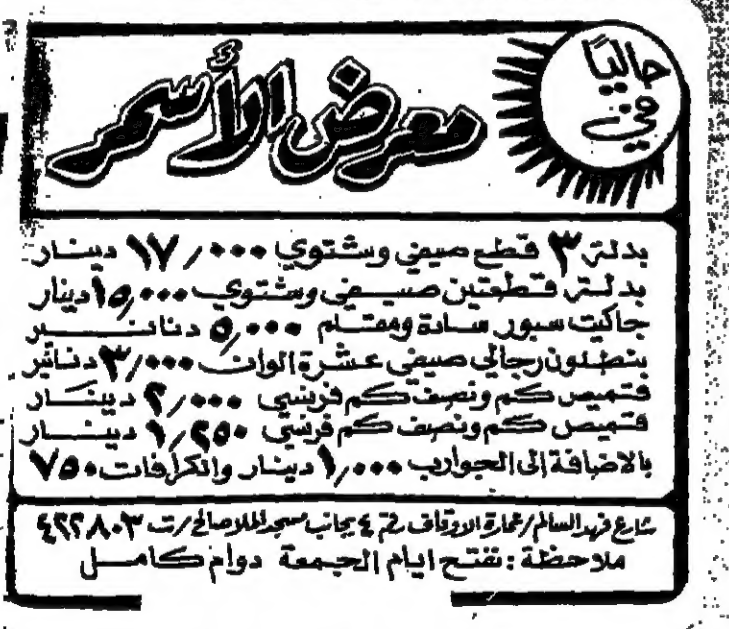 حاليًا
في
معرض الأسمر
بدلة ٣ قطع صيفي وشتوي ١٧/٠٠٠ دينار
بدلة قطعتين صيفي وشتوي ١٥/٠٠٠ دينار
جاكيت سبور سادة ومقلم ٥/٠٠٠ دنانير
بنطلون رجالي صيفي عشرة الوان ٣/٠٠٠ دنانير
قميص كم ونصف كم فرنسي ٢/٠٠٠ دينار
قميص كم ونصف كم فرنسي ١/٢٥٠ دينار
بالاضافة الى الجوارب ١/٠٠٠ دينار والكرافات ٧٥٠
شارع فهد السالم / عمارة الاوقاف رقم ٤ بجانب مسجد الملا صالح / ت ٤٢٢٨٠٣
ملاحظة : نفتح ايام الجمعة دوام كامل